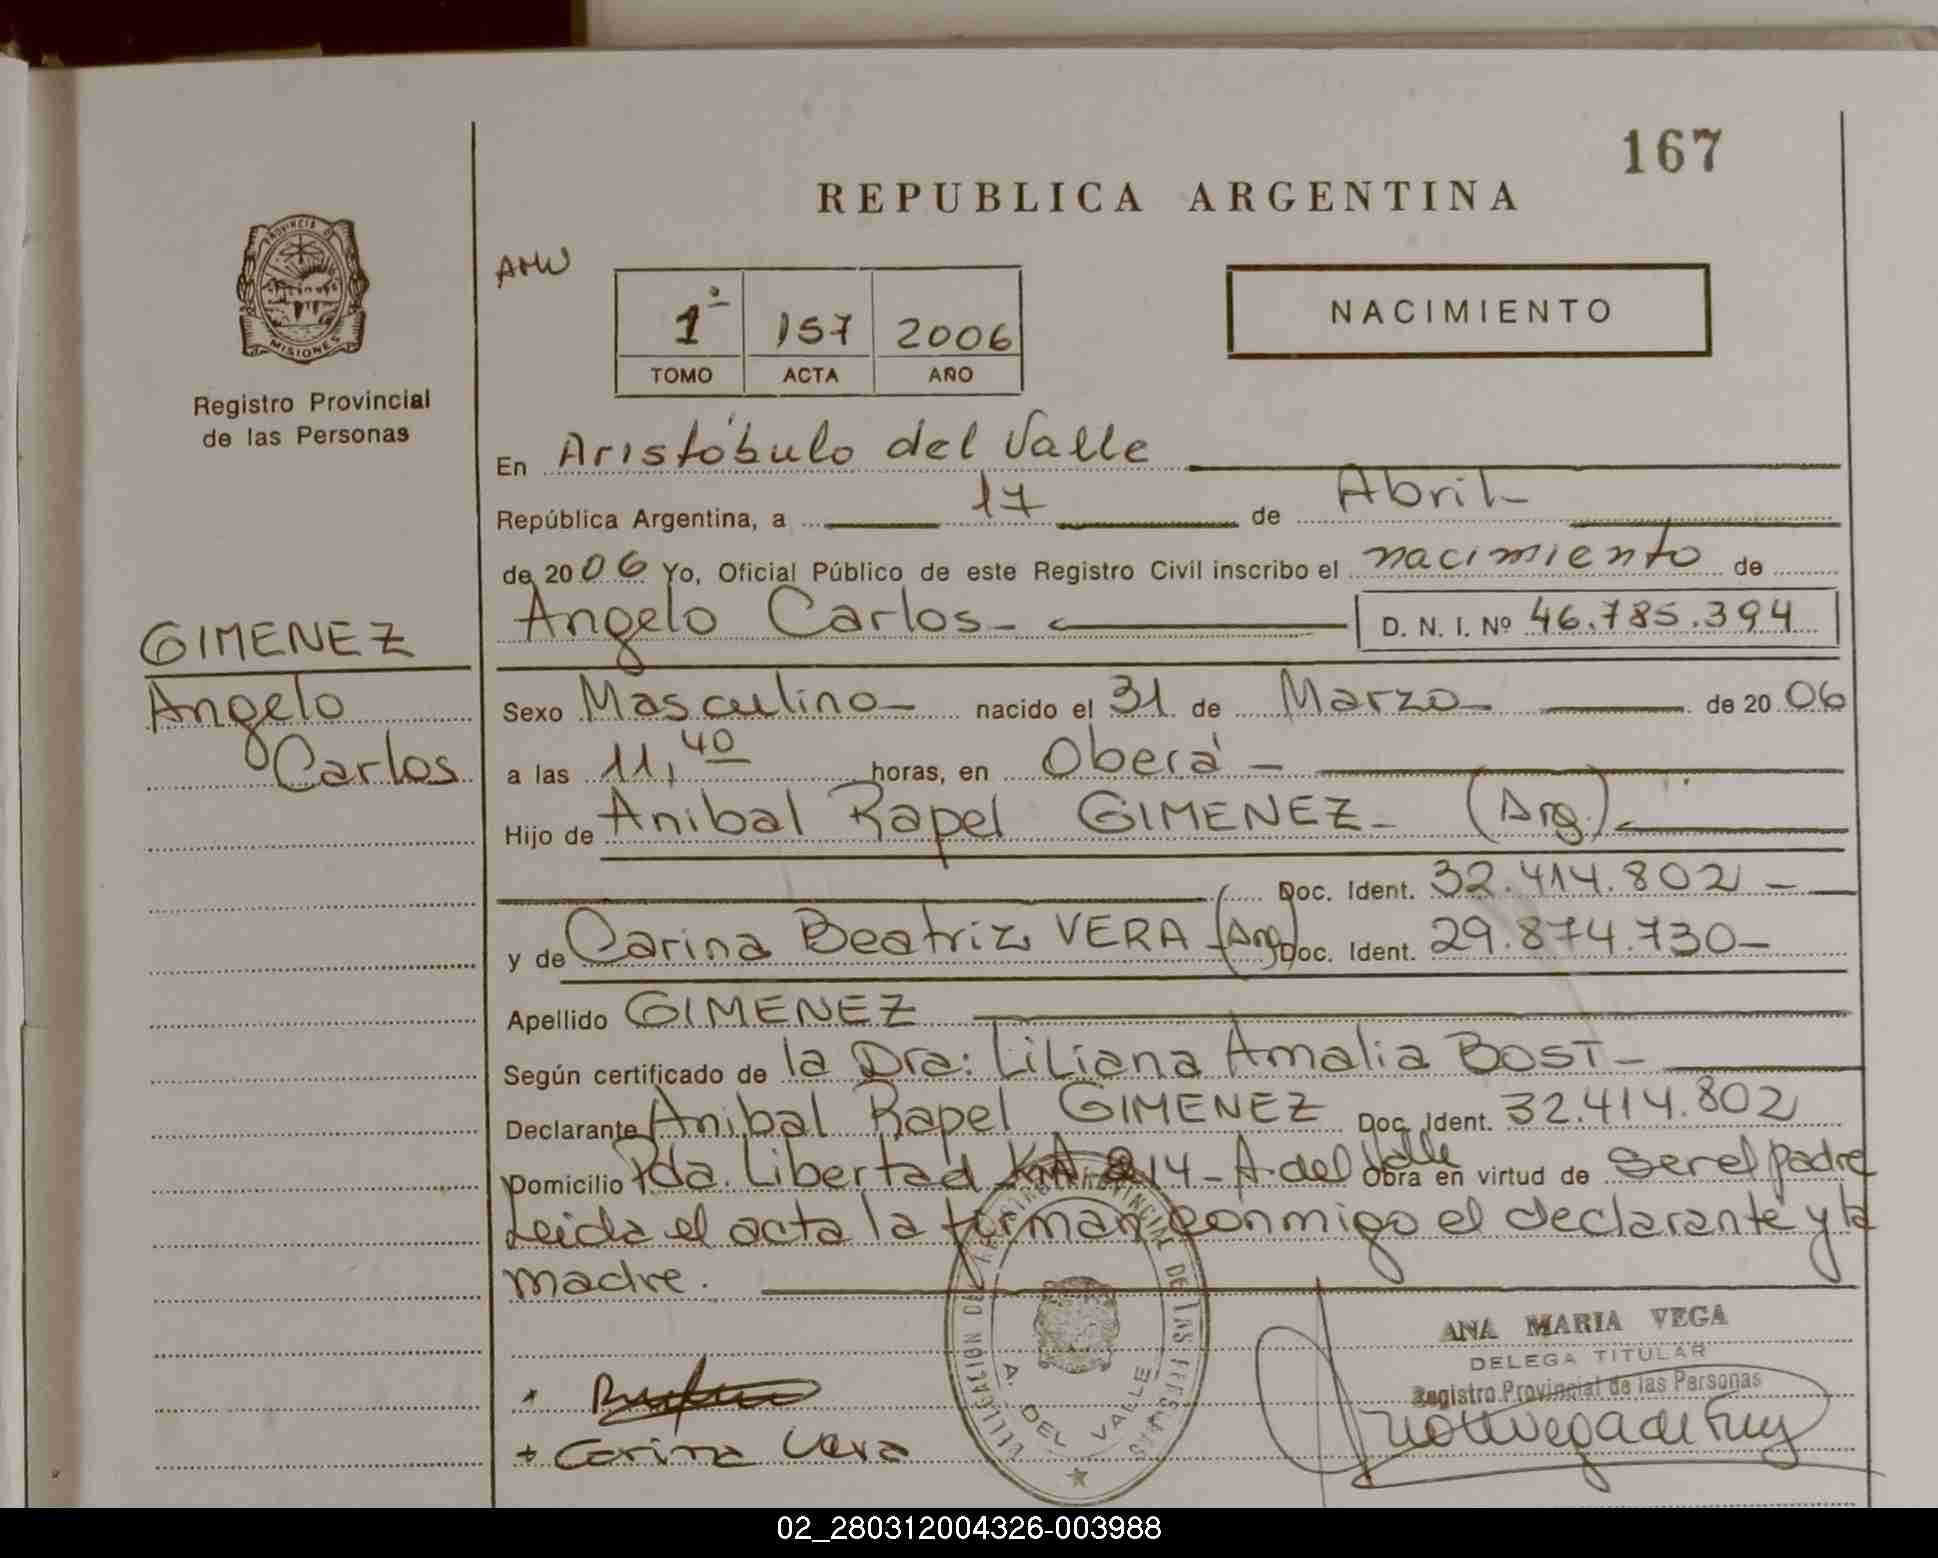 167
REPUBLICA ARGENTINA
PROVINCIA DE
MISIONES
Registro Provincial
de las Personas
AMV
1º 157 2006
TOMO ACTA AÑO
NACIMIENTO
En Aristóbulo del Valle
República Argentina, a 17 de Abril
de 2006 Yo, Oficial Público de este Registro Civil inscribo el nacimiento de
Angelo Carlos D. N. I. Nº 46.785.394
GIMENEZ
Angelo
Carlos
Sexo Masculino nacido el 31 de Marzo de 2006
a las 11,40 horas, en Oberá
Hijo de Anibal Rapel GIMENEZ (Arg.)
Doc. Ident. 32.414.802
y de Carina Beatriz VERA (Arg) Doc. Ident. 29.874.730
Apellido GIMENEZ
Según certificado de la Dra: Liliana Amalia BOST
Declarante Anibal Rapel GIMENEZ Doc. Ident. 32.414.802
Domicilio Pda. Libertad 214 - A. del Valle Obra en virtud de ser el padre
Leida el acta la firman conmigo el declarante y la
madre.
ANA MARIA VEGA
DELEGA TITULAR
Registro Provincial de las Personas
DELEGACION DEL REGISTRO PROVINCIAL DE LAS PERSONAS
A. DEL VALLE
+ Carina Vera
02_280312004326-003988